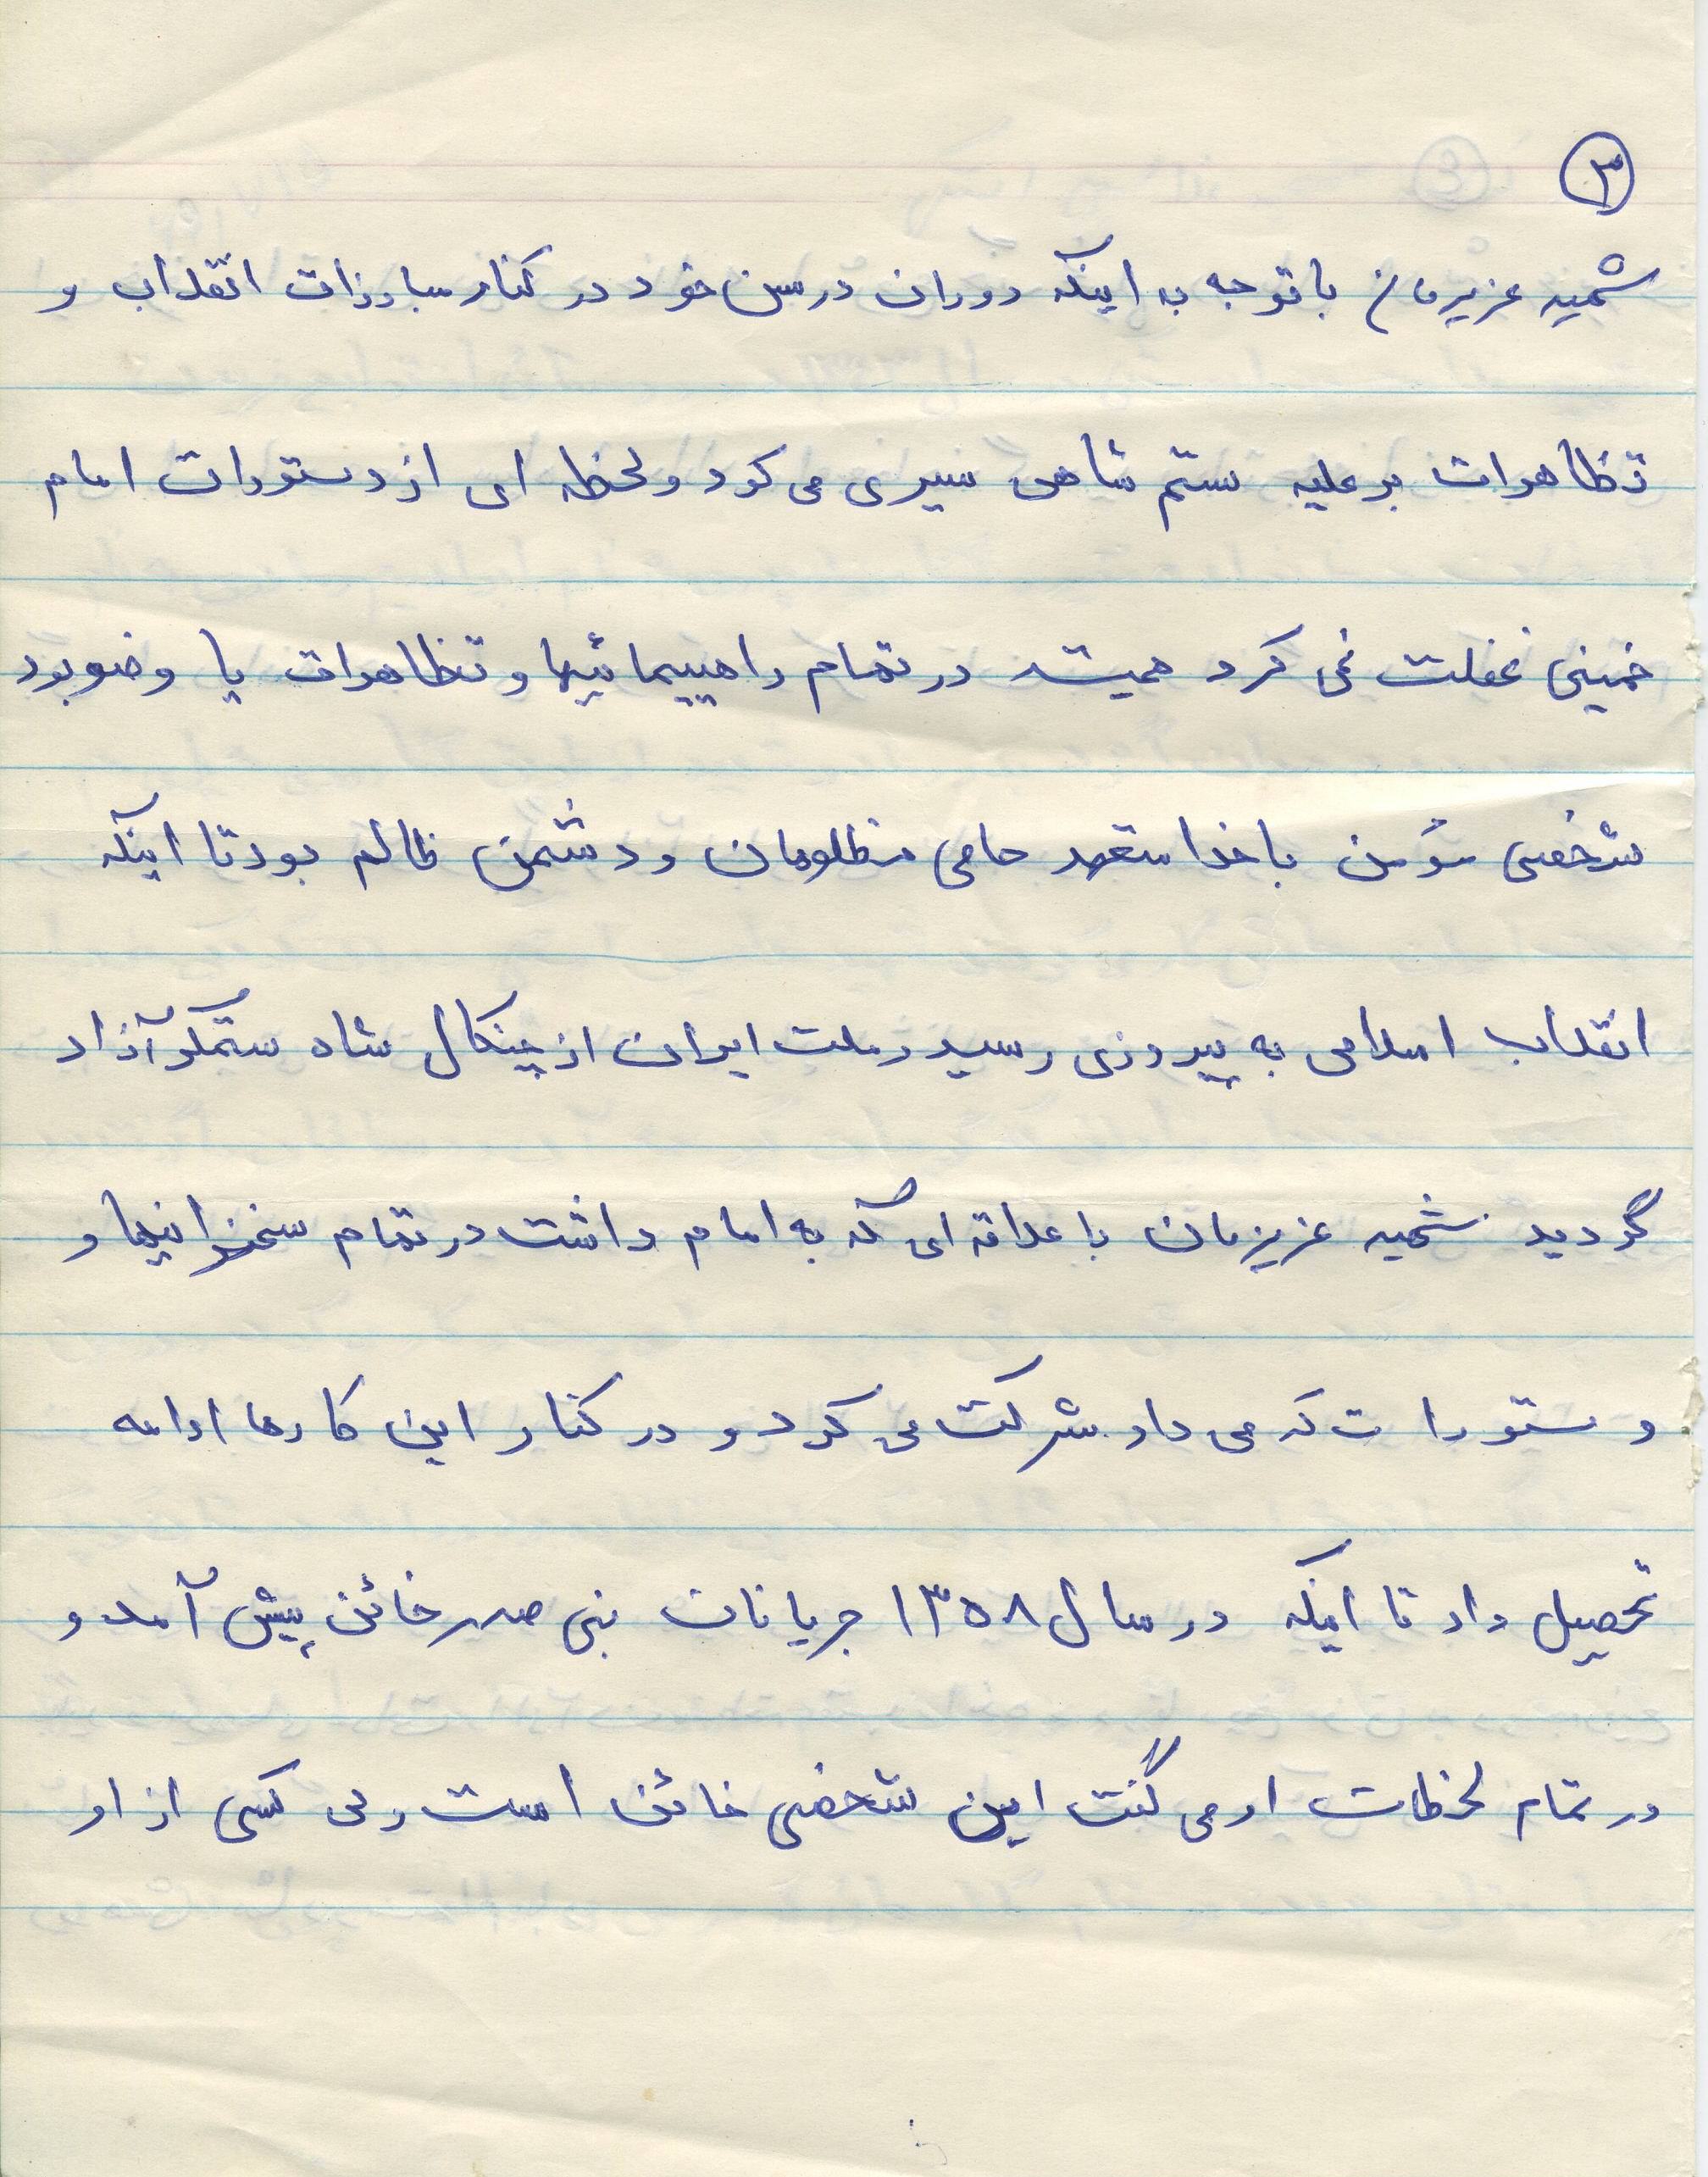 ۳
شهید عزیزمان باتوجه به اینکه دوران درسی خود در کنار مبارزات انقلاب و
تظاهرات بر علیه ستم شاهی سپری می کرد ولحظه ای از دستورات امام
خمینی غفلت نمی کرد همیشه در تمام راهپیمائیها و تظاهرات با وضو بود
شخصی مؤمن با خدا متعهد حامی مظلومان و دشمن ظالم بود تا اینکه
انقلاب اسلامی به پیروزی رسید و ملت ایران از چنگال شاه ستمگر آزاد
گردید شهید عزیزمان با علاقه ای که به امام داشت در تمام سخنرانیها و
دستورات که می داد شرکت می کرد و در کنار این کارها ادامه
تحصیل داد تا اینکه در سال ۱۳۵۸ جریانات بنی صدر خائن پیش آمد و
در تمام لحظات او می گفت این شخص خائن است ولی کسی از او